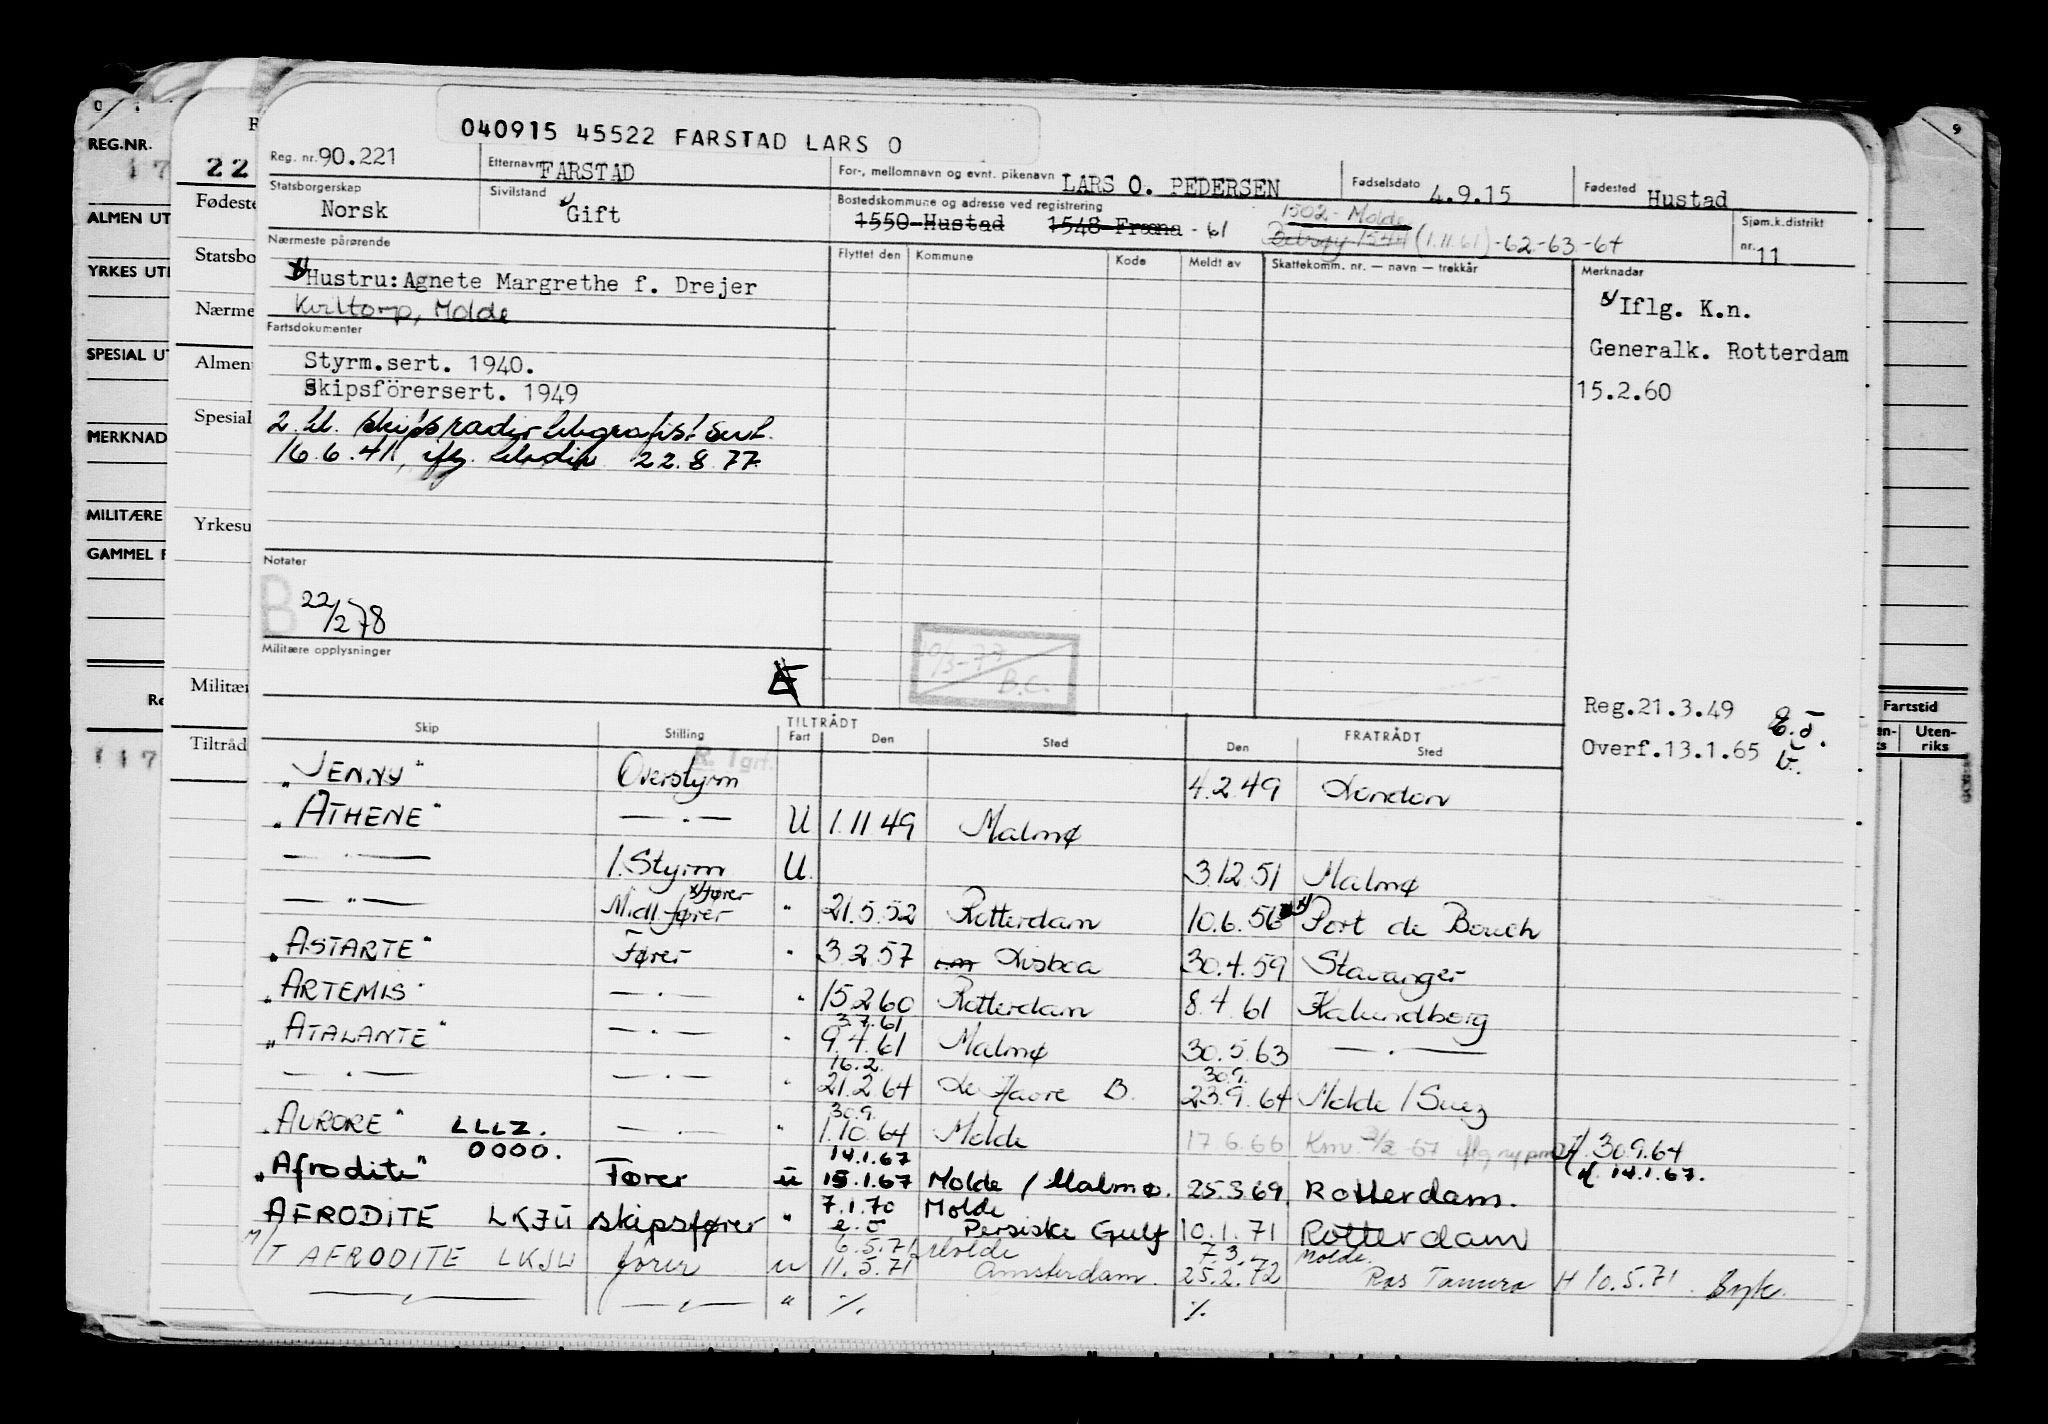 040915 45522 FARSTAD LARS O
Reg. nr. 90.221 Etternavn FARSTAD For-, mellomnavn og evnt. pikenavn LARS O. PEDERSEN Fødselsdato 4.9.15 Fødested Hustad
Statsborgerskap Norsk Sivilstand Gift Bostedskommune og adresse ved registrering 1550 Hustad 1548 Fræna - 61 1502 - Molde (1.11.61) - 62 - 63 - 64 Sjøm.k.distrikt nr. 11
Nærmeste pårørende
Hustru: Agnete Margrethe f. Drejer
Kviltorp, Molde
Flyttet den Kommune Kode Meldt av Skattekomm. nr. — navn — trekkår Merknader
x/ Iflg. K.n.
Generalk. Rotterdam
15.2.60
Fartsdokumenter
Styrm.sert. 1940.
Skipsförersert. 1949
2. kl. skipsradiotelegrafist sert.
16.6.41, iflg. teledir. 22.8.77
Notater
B 22/2 78
Militære opplysninger
30/3-77 B.C.
Reg.21.3.49
Overf.13.1.65
Skip Stilling TILTRÅDT Fart Den Sted FRATRÅDT Den Sted
R. Tgrf.
"JENNY" Overstyrm 4.2.49 London
"ATHENE" — " — U 1.11.49 Malmø
— " — 1. Styrm U. 3.12.51 Malmø
— " — Midl. fører x/fører " 21.5.52 Rotterdam 10.6.56 x/ Port de Bouch
"ASTARTE" Fører " 3.2.57 Lisboa 30.4.59 Stavanger
"ARTEMIS" — " — " 15.2.60 Rotterdam 8.4.61 Kalundborg
3.7.61
"ATALANTE" — " — " 9.4.61 Malmø 30.5.63 — " —
16.2. 30.9.
— " — — " — " 21.2.64 Le Havre B. 23.9.64 Molde / Suez
30.9.
"AURORE" LLLZ. — " — " 1.10.64 Molde 17.6.66 30.9.64
0000. 14.1.67 14.1.67.
"Afrodite" Fører u 15.1.67 Molde / Malmø. 25.3.69 Rotterdam.
7.1.70 Molde
AFRODITE LKJU skipsfører " e.o Persiske Gulf 10.1.71 Rotterdam
6.5.71 Molde 7.3. Molde.
M/T AFRODITE LKJU fører u 11.5.71 Amsterdam. 25.2.72 Ras Tanura H 10.5.71
— " — — " — " ./. ./.
REG.NR.
ALMEN UT
YRKES UT
SPESIAL U
MERKNAD
MILITÆRE
GAMMEL
22
Fødeste
Statsbo
Nærme
Almen
Spesial
Yrkesu
Militær
Tiltråd
Fartstid
Uten-
riks